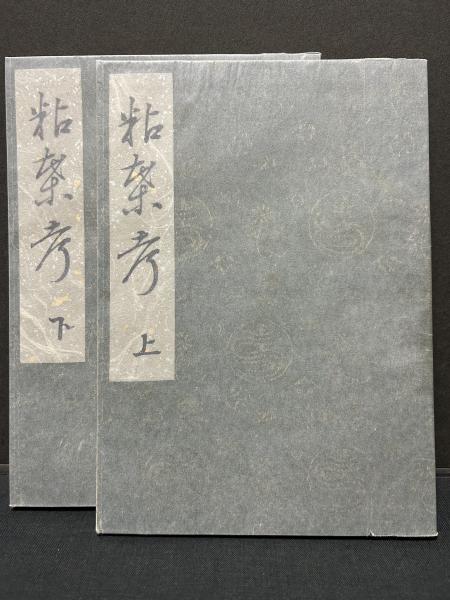 粘葉考 上
粘葉考 下